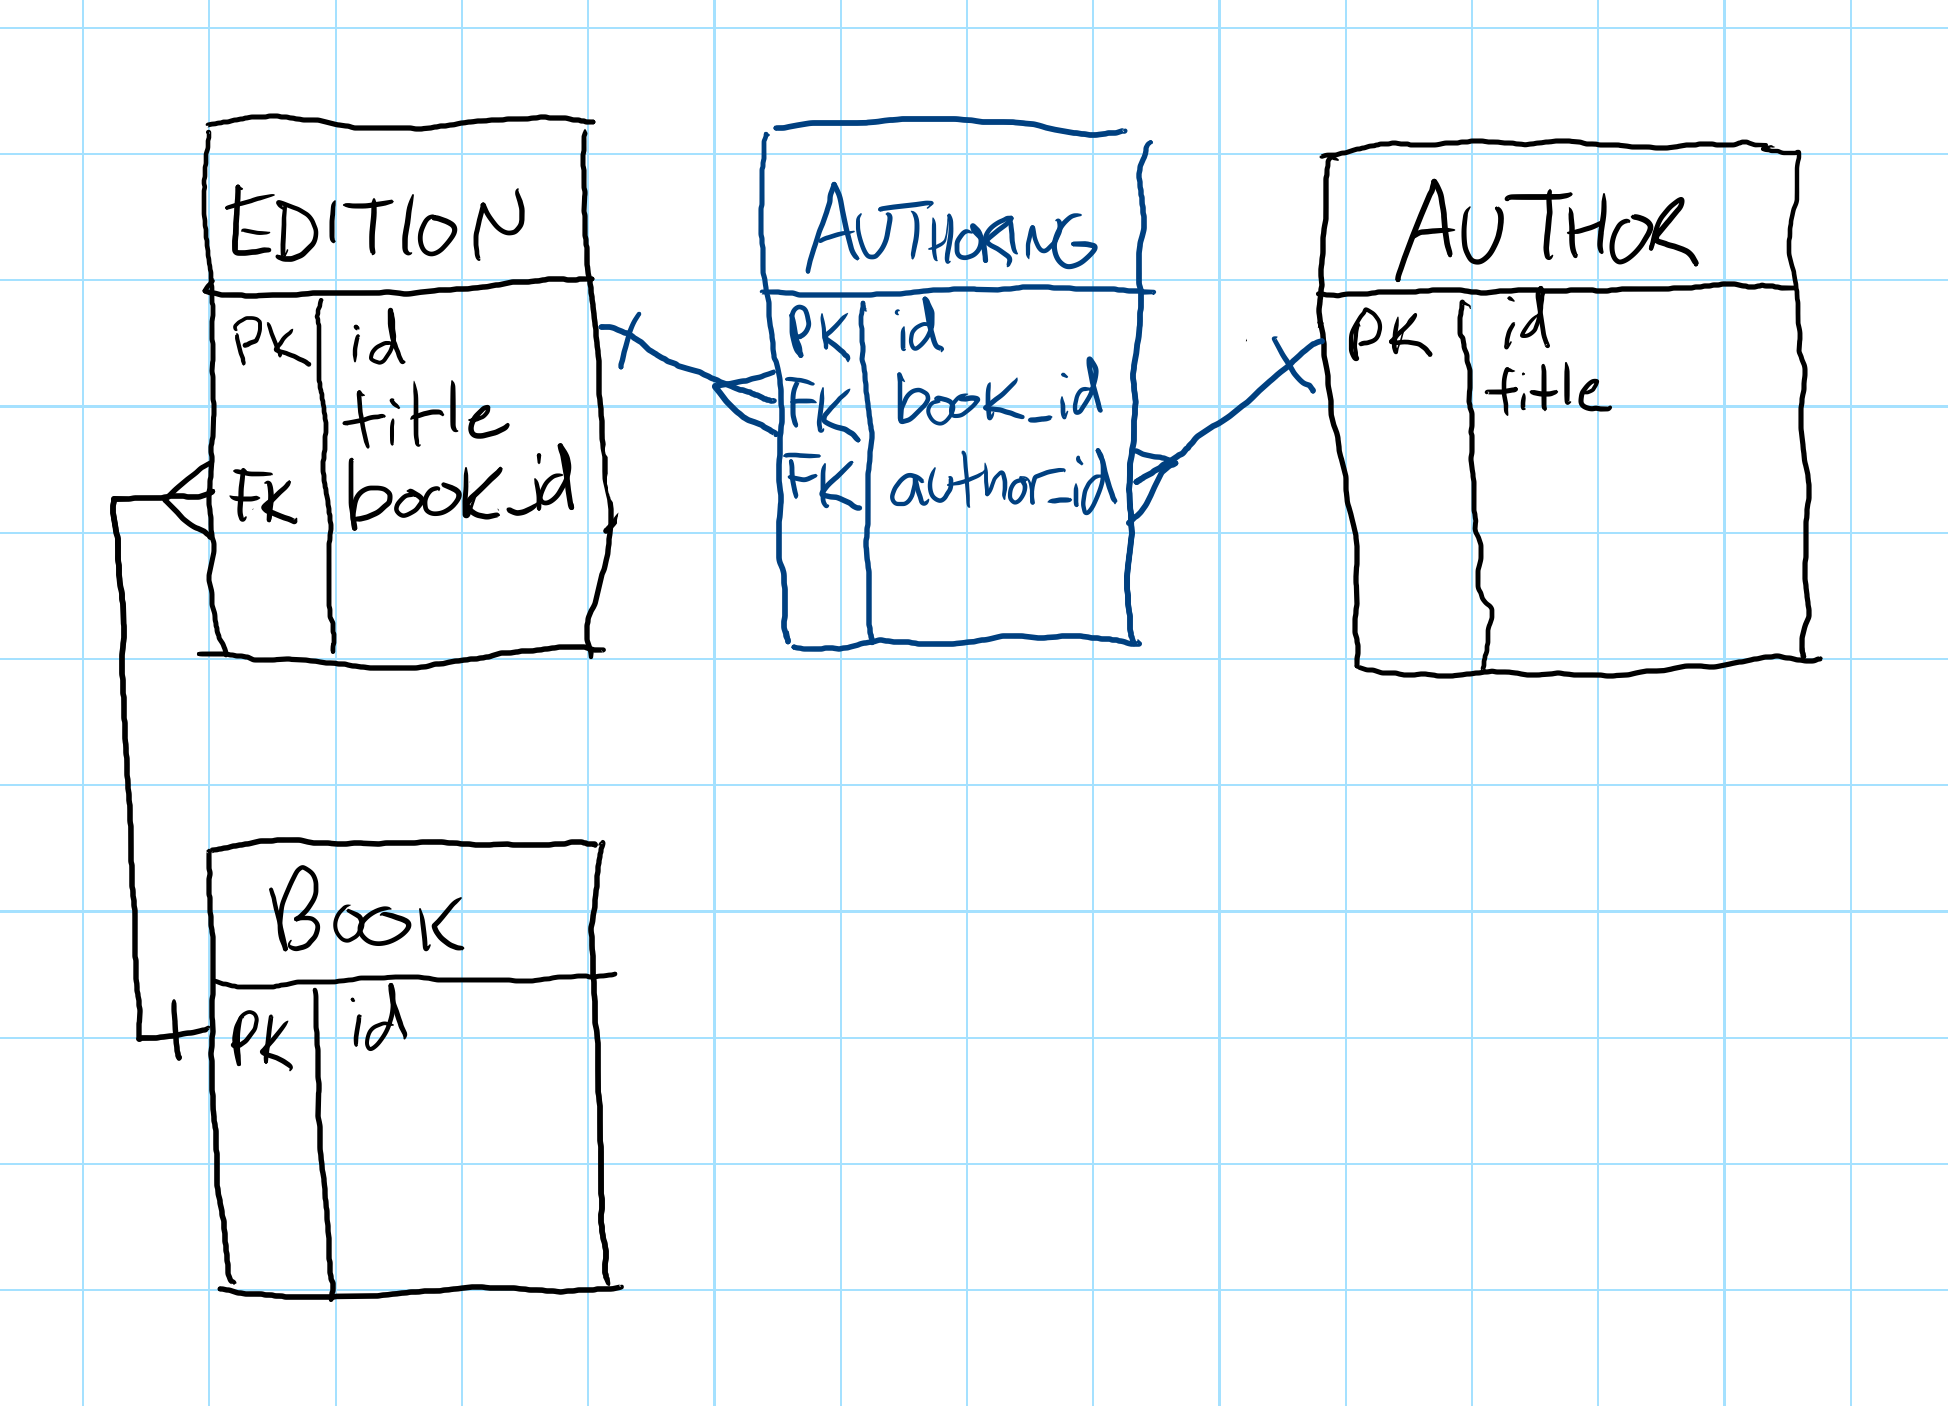 EDITION
PK id
title
FK book_id
AUTHORING
PK id
FK book_id
FK author_id
AUTHOR
PK id
title
BOOK
PK id